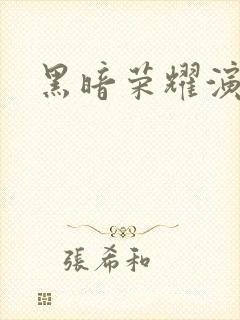 黑暗荣耀演
張希和